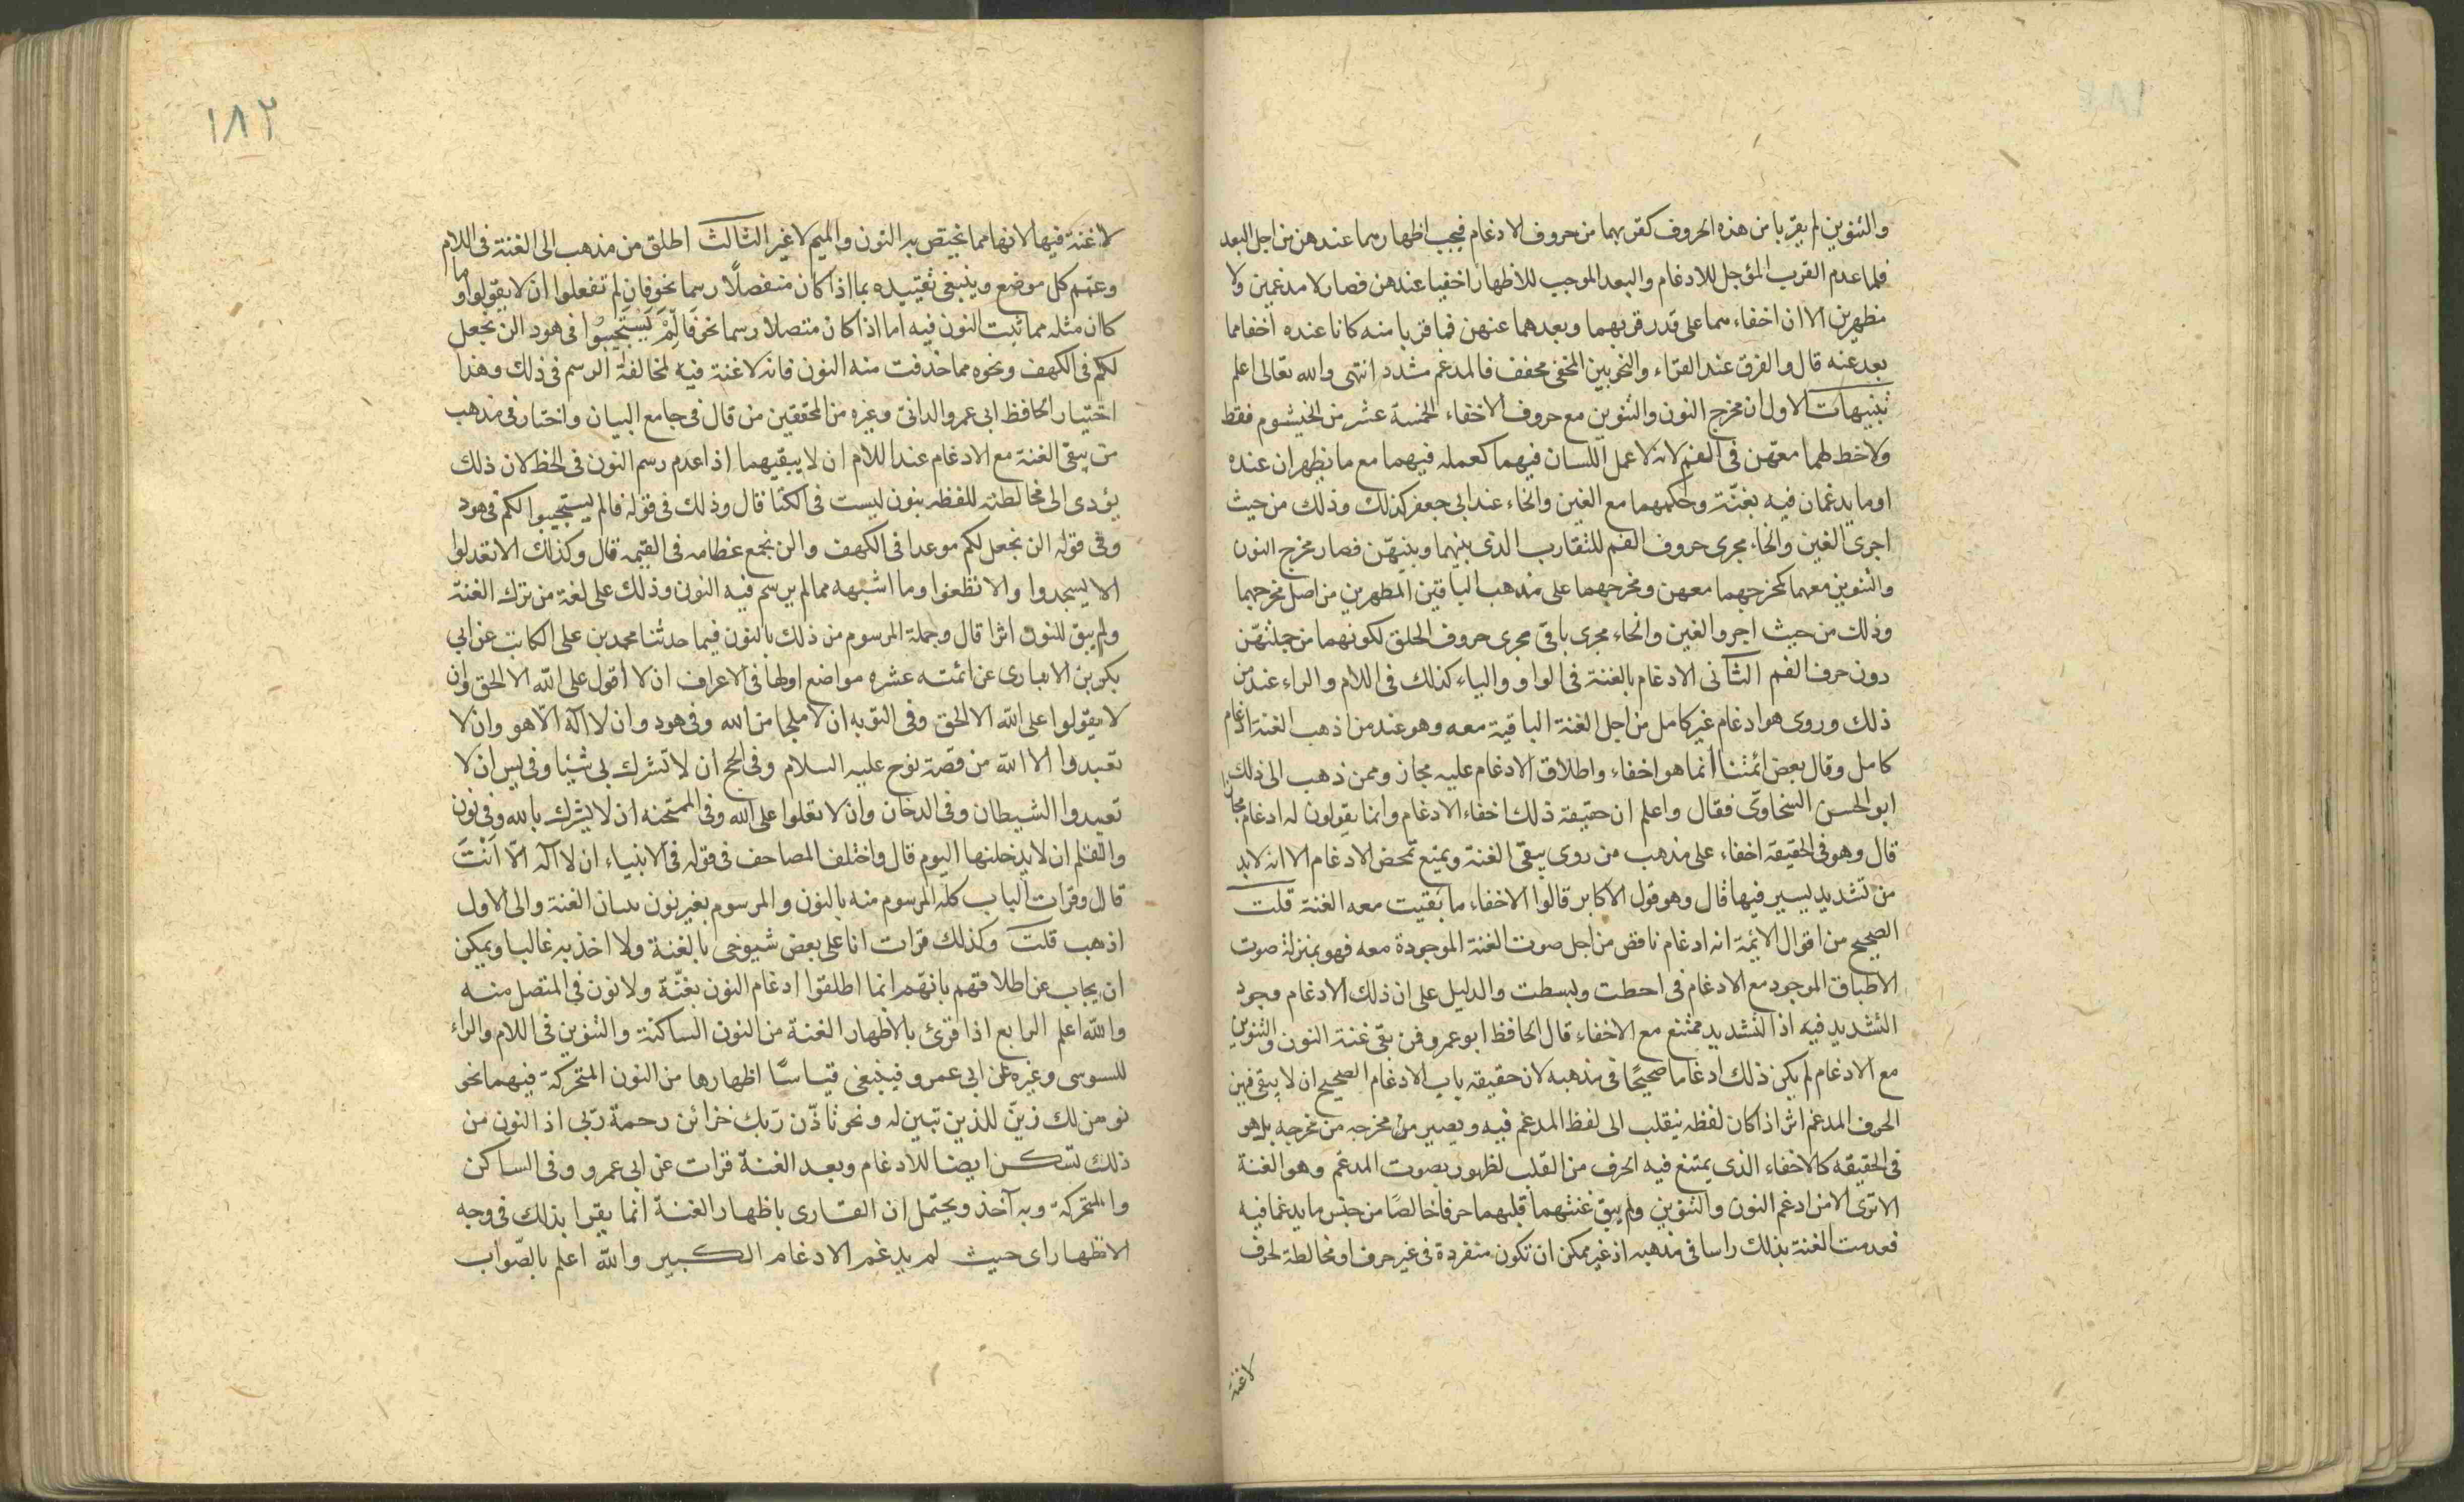 والتنوين لم يقربا من هذه الحروف كقربهما من حروف الادغام فيجب اظهارهما عندهن من اجل البعد
فلما عدم القرب الموجل للادغام والبعد الموجب للاظهار اخفيا عندهن فصار لا مدغمين ولا
مظهرين الا ان اخفاءهما على قدر قربهما وبعدهما عنهن فما قربا منه كانا عنده اخفا مما
بعد عنه قال والفرق عند القراء والنحويين المخفى مخفف فالمدغم مشدد انتهى والله تعالى اعلم
تنبيهات الاول ان مخرج النون والتنوين مع حروف الاخفاء الخمسة عشر من الخيشوم فقط
ولا خط لهما معهن فى الفم لانه لا عمل اللسان فيهما كعمله فيهما مع ما يظهران عنده
او ما يدغمان فيه بغنّة وحكمهما مع الغين والخاء عند ابى جعفر كذلك وذلك من حيث
اجرى الغين والخاء مجرى حروف الفم للتقارب الذى بينهما وبينهّن فصار مخرج النون
والتنوين معهما كمخرجهما معهن ومخرجهما على مذهب الباقين المظهرين من اصل مخرجهما
وذلك من حيث اجروا الغين والخاء مجرى باقى مجرى حروف الحلق لكونهما من جملتهّن
دون حرف الفم الثانى الادغام بالغنة فى الواو والياء كذلك فى اللام والراء عند من
ذلك وروى هو ادغام غير كامل من اجل الغنة الباقية معه وهو عند من اذهب الغنة ادغام
كامل وقال بعض ائمتنا انما هو اخفاء واطلاق الادغام عليه مجاز وممن ذهب الى ذلك
ابو الحسن السخاوى فقال واعلم ان حقيقة ذلك اخفاء الادغام وانما يقولون له ادغام مجازا
قال وهو فى الحقيقة اخفاء على مذهب من روى يبقى الغنة ويمنع تمحض الادغام الا انه لابد
من تشديد يسير فيها قال وهو قول الاكابر قالوا الاخفاء ما بقيت معه الغنة قلت
الصحيح من اقوال الايمة انه ادغام ناقص من اجل صوت الغنة الموجودة معه فهو بمنزلة صوت
الاطباق الموجود مع الادغام فى احطت وبسطت والدليل على ان ذلك الادغام وجود
التشديد فيه اذ التشديد ممتنع مع الاخفاء قال الحافظ ابو عمرو فمن بقى غنة النون والتنوين
مع الادغام لم يكن ذلك ادغاما صحيحًا فى مذهبه لان حقيقه باب الادغام الصحيح ان لا يبقى فيه من
الحرف المدغم اثر اذ كان لفظه ينقلب الى لفظ المدغم فيه ويصير من مخرجه من مخرجه بل هو
فى الحقيقه كالاخفاء الذى يمتنع فيه الحرف من القلب لظهور صوت المدغم وهو الغنة
الا ترى الا من ادغم النون والتنوين ولم يبق غنتهما قلبهما حرفا خالصًا من جنس ما يدغما فيه
فعدمت الغنة بذلك راسا فى مذهبه اذ غير ممكن ان تكون منفردة فى غير حرف او مخالطة لحرف
لاغنة
١٨٢
لاغنة فيها لانها مما يختص به النون والميم لا غير الثالث اطلق من مذهب الى الغنة فى اللام
وعمم كل موضع وينبغى تقييده بما اذا كان منفصلًا رسما نحو فان لم تفعلوا ان لا يقولوا وما
كان مثله مما ثبت النون فيه اما اذا كان متصلا رسما نحو فَالِّمْ يَسْتَجِيبُوا فى هود الن نجعل
لكم فى الكهف ونحوه مما حذفت منه النون فانه لاغنة فيه لمخالفة الرسم فى ذلك وهذا
اختيار الحافظ ابى عمرو الدانى وغيره من المحققين من قال فى جامع البيان واختار فى مذهب
من يبقى الغنة مع الادغام عند اللام ان لا يبقيهما اذا عدم رسم النون فى الخط لان ذلك
يؤدى الى مخالطته للفظه بنون ليست فى الكتا قال وذلك فى قوله فالم يستجيبوا لكم فى هود
وفى قوله الن نجعل لكم موعدا فى الكهف والن نجمع عظامه فى القيمه قال وكذلك الا تعدلوا
الا يسجدوا والا تطغوا وما اشبهه مما لم يرسم فيه النون وذلك على لغة من ترك الغنة
ولم يبق للنون اثرا قال وجملة المرسوم من ذلك بالنون فيما حدثنا محمد بن على الكاتب عن ابى
بكر بن الانبارى عن ائمته عشره مواضع اولها فى الاعراف ان لا اقول على الله الا الحق وان
لا يقولوا على الله الا الحق وفى التوبه ان لا ملجا من الله وفى هود وان لا اله الا هو وان لا
تعبدوا الا الله من قصة نوح عليه السلام وفى الحج ان لا تشرك بى شيئا وفى يس ان لا
تعبدوا الشيطان وفى الدخان وان لا تعلوا على الله وفى الممتحنه ان لا يشرك بالله وفى نون
والقلم ان لا يدخلنها اليوم قال واختلف المصاحف فى قوله فى الانبياء ان لا اله الا اَنْتَ
قال وقرات الباب كله المرسوم منه بالنون والمرسوم بغير نون ببيان الغنة والى الاول
اذهب قلت وكذلك قرات انا على بعض شيوخى بالغنة ولا اخذ به غالبا ويمكن
ان يجاب عن اطلاقهم بانهم انما اطلقوا ادغام النون بغنّة ولا نون فى المتصل منه
والله اعلم الرابع اذا قرئ بالاظهار الغنة من النون الساكنة والتنوين فى اللام والراء
للسوسى وغيره عن ابى عمرو فينبغى قياسًا اظهارها من النون المتحركة فيهما نحو
نومن لك زيّن للذين تبين له ونحو تاذّن ربك خزائن رحمة ربى اذ النون من
ذلك تسكن ايضا للادغام وبعد الغنة قرات عن ابى عمرو وفى الساكن
والمتحركة وبه آخذ ويحتمل ان القارى باظهار الغنة انما يقرا بذلك فى وجه
الاظهار اى حيث لم يدغم الادغام الكبير والله اعلم بالصّواب